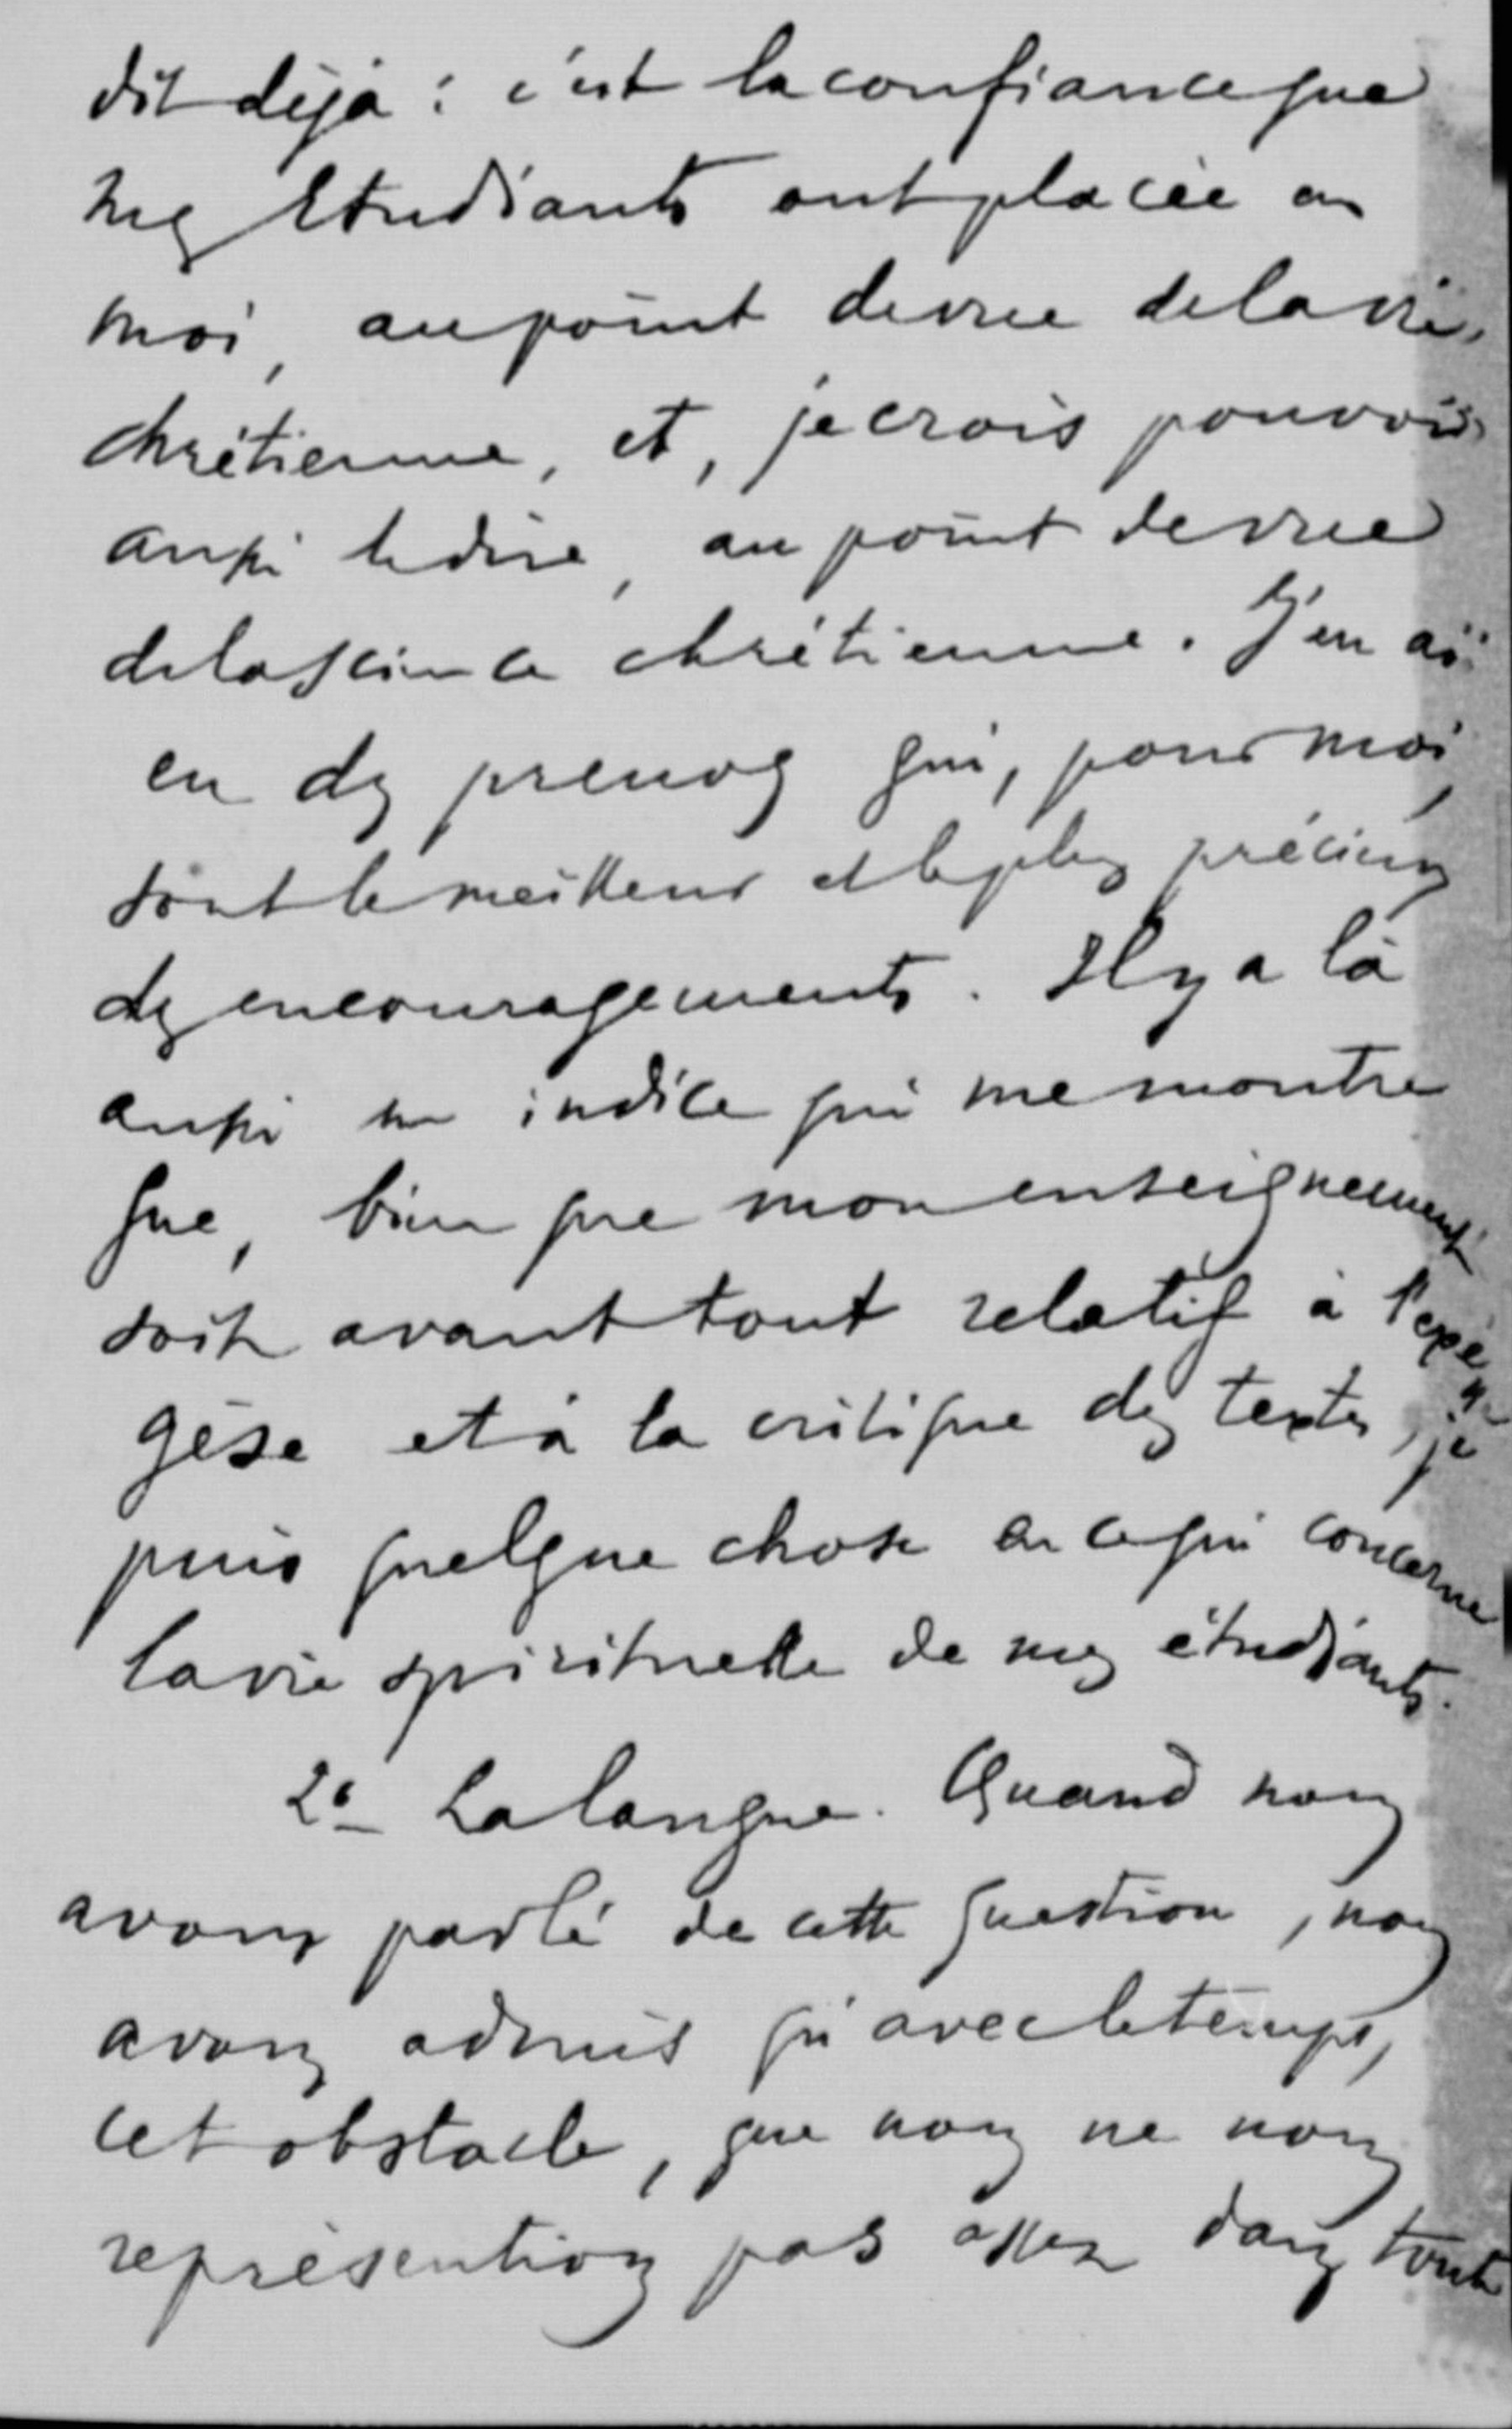 dit déjà : c'est la confiance que
mes Etudiants ont placée en
moi, au point de vue de la vie
chrétienne, et, je crois pouvoir
aussi le dire, au point de vue
de la science chrétienne. J'en ai
eu des preuves qui, pour moi,
sont le meilleur et le plus précieux
des encouragements. Il y a là
aussi un indice qui me montre
que, bien que mon enseignement
soit avant tout relatif à l'exé
gèse et à la critique des textes, je
puis quelque chose en ce qui concerne
la vie spirituelle de mes étudiants.
2° La langue. Quand nous
avons parlé de cette question, nous
avons admis qu'avec le temps,
cet obstacle, que nous ne nous
représentions pas assez dans toute